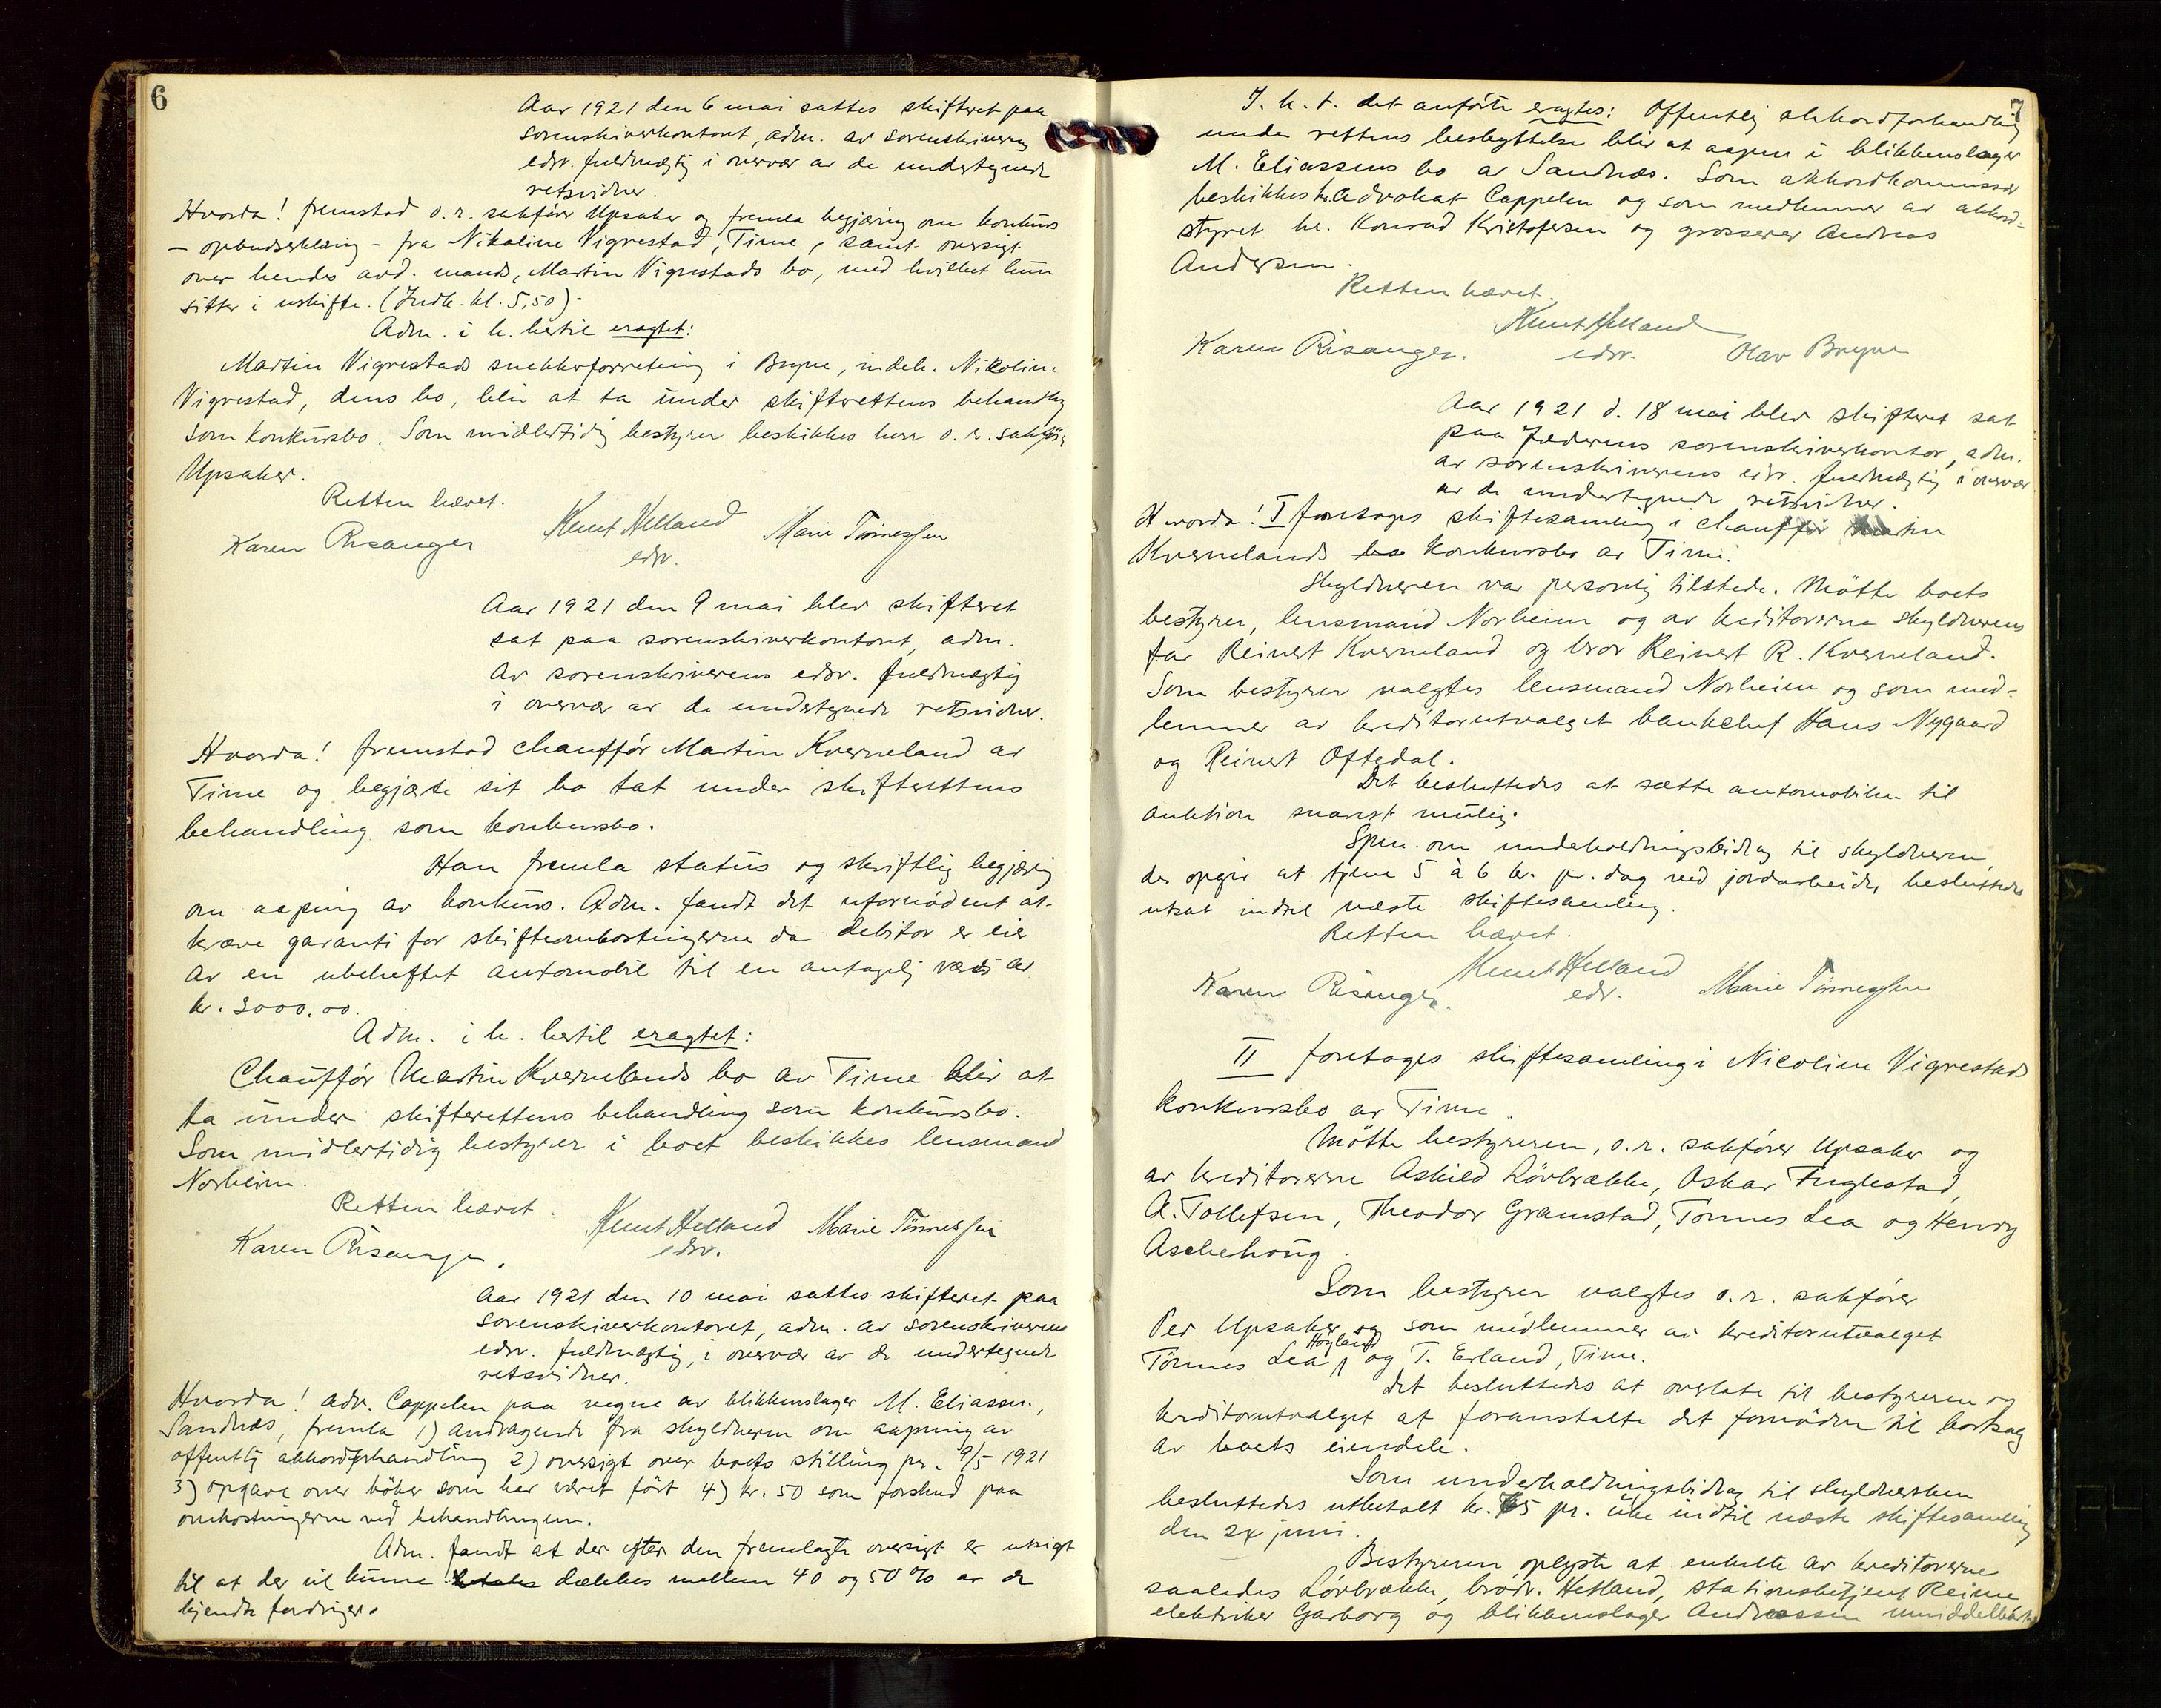 6
Aar 1921 den 6 mai sattes skifteret paa
sorenskriverkontoret, adm. av sorenskriverens
edsv. fuldmægtig i overvær av de undertegnede
retsvidner.
Hvorda! fremstod o.r. sakfører Upsaker og fremla begjæring om konkurs
- opbudserklæring - fra Nikoline Vigrestad, Time, samt oversigt
over hendes avd. mands, Martin Vigrestads bo, med hvilket hun
sitter i uskifte. (Indk. kl. 5,50).
Adm. i h. hertil eragtet:
Martin Vigrestads snekkerforretning i Bryne, indeh. Nikoline
Vigrestad, dens bo, blir at ta under skifterettens behandling
som konkursbo. Som midlertidig bestyrer beskikkes herr o.r. sakfører
Upsaker.
Retten hævet.
Karen Risanger Knut Helland Marie Tønnessen
edsv.
Aar 1921 den 9 mai blev skifteret
sat paa sorenskriverkontoret, adm.
av sorenskriverens edsv. fuldmægtig
i overvær av de undertegnede retsvidner.
Hvorda! fremstod chauffør Martin Kverneland av
Time og begjærte sit bo tat under skifterettens
behandling som konkursbo.
Han fremla status og skriftlig begjæring
om aapning av konkurs. Adm. fandt det ufornødent at
kræve garanti for skifteomkostningerne da debitor er eier
av en ubeheftet automobil til en antagelig værdi av
kr. 3000.00.
Adm. i h. hertil eragtet:
Chauffør Martin Kvernelands bo av Time blir at
ta under skifterettens behandling som konkursbo.
Som midlertidig bestyrer i boet beskikkes lensmand
Norheim.
Retten hævet. Knut Helland Marie Tønnessen
Karen Risanger. edsv.
Aar 1921 den 10 mai sattes skifteret paa
sorenskriverkontoret, adm. av sorenskriverens
edsv. fuldmægtig, i overvær av de undertegnede
retsvidner.
Hvorda! adv. Cappelen paa vegne av blikkenslager M. Eliassen,
Sandnæs, fremla 1) andragende fra skyldneren om aapning av
offentlig akkordforhandling 2) oversigt over boets stilling pr. 9/5 1921
3) opgave over bøker som har været ført 4) kr. 50 som forskud paa
omkostningerne ved behandlingen.
Adm. fandt at der efter den fremlagte oversigt er utsigt
til at der vil kunne dækkes mellem 40 og 50% av de
kjendte fordringer.
7
I. h. t. det anførte eragtes: Offentlig akkordforhandling
under rettens beskyttelse blir at aapne i blikkenslager
M. Eliassens bo av Sandnæs. Som akkordkommissær
beskikkes hr. Advokat Cappelen og som medlemmer av akkord-
styret hr. Konrad Kristofersen og grosserer Andreas
Andersen.
Retten hævet.
Knut Helland
Karen Risanger. edsv. Olav Bryne
Aar 1921 d. 18 mai blev skifteret sat
paa Jæderens sorenskriverkontor, adm.
av sorenskriverens edsv. fuldmægtig i overvær
av de undertegnede retsvidner.
Hvorda! I foretages skiftesamling i chauffør Martin
Kvernelands bo konkursbo av Time.
Skyldneren var personlig tilstede. Møtte boets
bestyrer, lensmand Norheim og av kreditorerne skyldnerens
far Reinert Kverneland og bror Reinert R. Kverneland.
Som bestyrer valgtes lensmand Norheim og som med-
lemmer av kreditorutvalget bankchef Hans Nygaard
og Reinert Oftedal.
Det besluttedes at sætte automobilen til
auktion snarest mulig.
Spm. om underholdningsbidrag til skyldneren,
der opgir at tjene 5 à 6 kr. pr. dag ved jordarbeide, besluttedes
utsat indtil næste skiftesamling.
Retten hævet.
Knut Helland
Karen Risanger. edsv. Marie Tønnessen
II foretages skiftesamling i Nicoline Vigrestads
konkursbo av Time.
Møtte bestyreren, o.r. sakfører Upsaker og
av kreditorerne Askild Lørbrække, Oskar Fuglestad,
A. Tollefsen, Theodor Gramstad, Tønnes Lea og Henry
Aschehoug.
Som bestyrer valgtes o.r. sakfører
Per Upsaker og som medlemmer av kreditorutvalget
Tönnes Lea, Høyland og T. Erland, Time.
Det besluttedes at overlate til bestyreren og
kreditorutvalget at foranstalte det fornødne til bortsalg
av boets eiendele.
Som underholdningsbidrag til skyldnersken
besluttedes utbetalt kr. 75 pr. uke indtil næste skiftesamling
den 24 juni.
Bestyreren oplyste at enkelte av kreditorerne
saaledes Lørbrække, brødr. Hetland, stationsbetjent Reime
elektriker Garborg og blikkenslager Andreassen umiddelbart